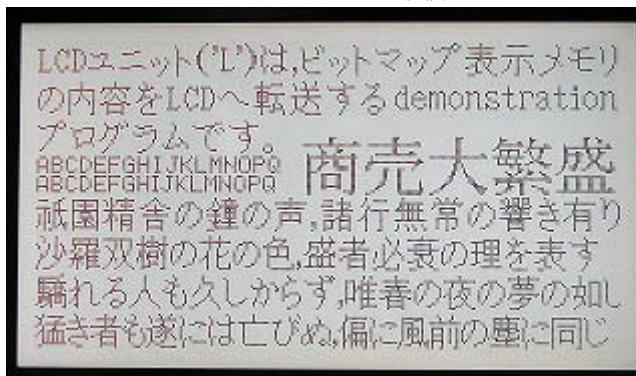 LCDユニット('L')は,ビットマップ表示メモリ
の内容をLCDへ転送するdemonstration
プログラムです。
ABCDEFGHIJKLMNOPQ
ABCDEFGHIJKLMNOPQ
商売大繁盛
祇園精舎の鐘の声,諸行無常の響き有り
沙羅双樹の花の色,盛者必衰の理を表す
驕れる人も久しからず,唯春の夜の夢の如し
猛き者も遂には亡びぬ,偏に風前の塵に同じ